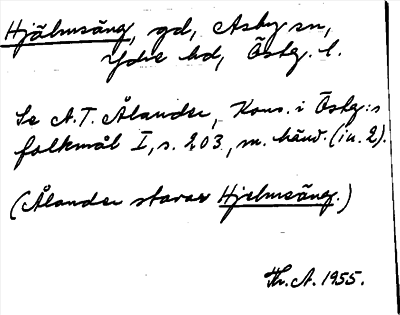 Hjälmsäng, gd, Asby sn,
Ydre hd, Östg. l.
Se A.T. Ålander, Kons. i Östg:s
folkmål I, s. 203, m. hänv. (in. 2).
(Ålander stavar Hjelmsäng.)
Th. A. 1955.